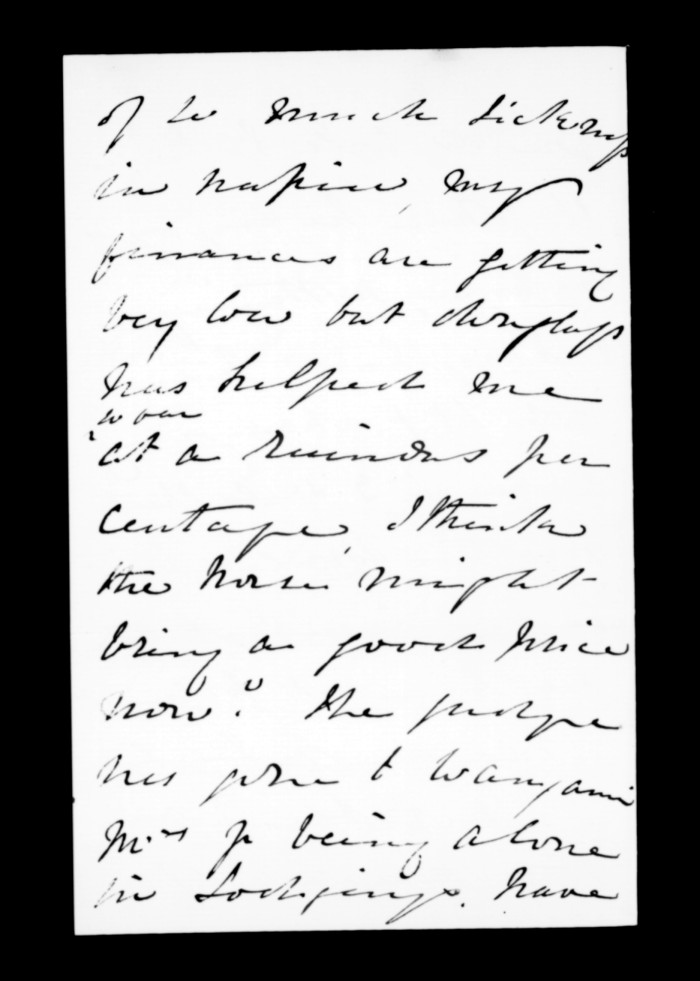 of so much sickness
in napier, my
finances are getting
very low but douglass
has helped me
at a ruinous per
centage, I think
the horse might
bring a good price
now? the judge
has gone to Wanganui
Mrs J being alone
in Lodgings. have